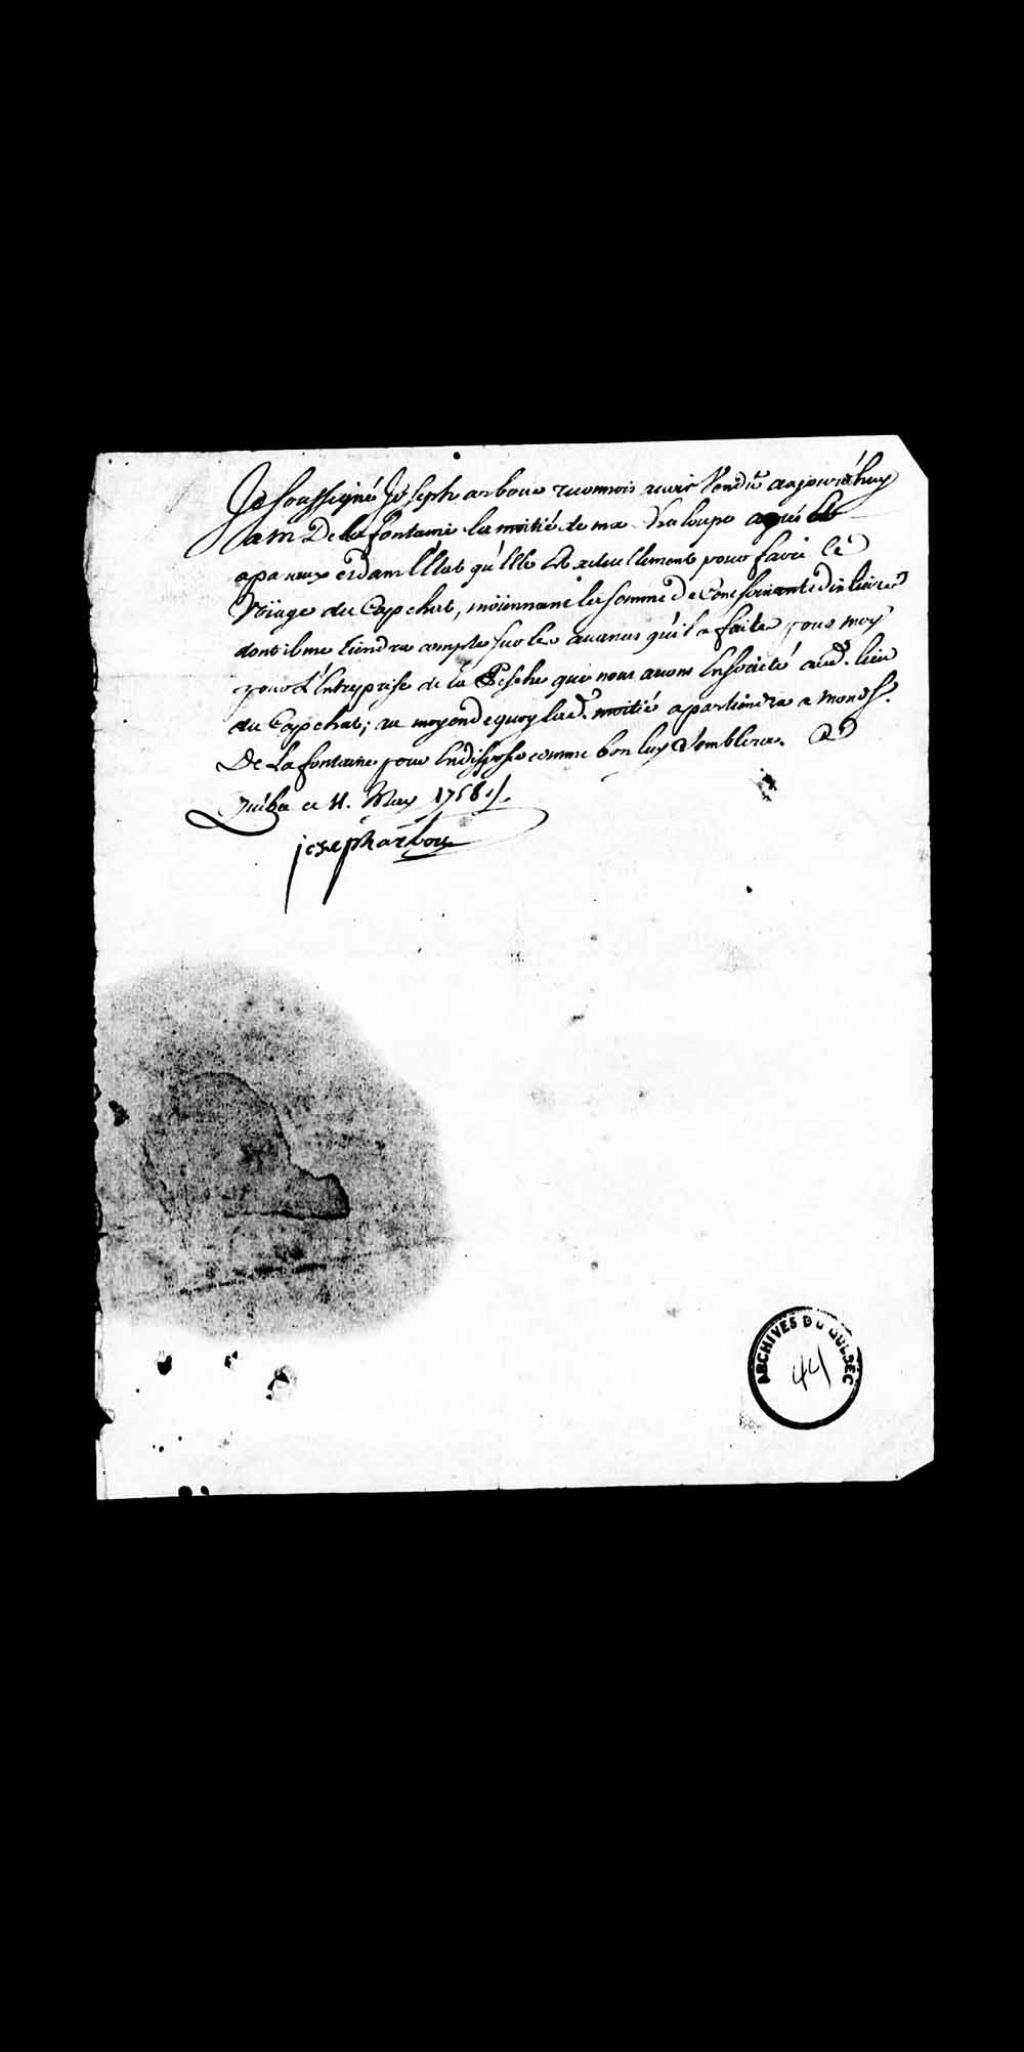 Je soussigné Joseph arbour reconnois avoir Vendu aujourd'huy
a M De la fontaine la moitié de ma Chaloupe agrés et
aparaux et dans l'Etat qu'Elle Est actuellement pour faire le
Voÿage du Cap chat, moÿennant la somme de Cent soixante dix livres
dont il me tiendra compte sur les avances qu'il a faites pour moy
pour L'Entreprise de la Pesche que nous avons En société aud. lieu
du Cap chat; au moyen de quoy lad. moitié apartiendra a mond S.
De La fontaine pour En disposer comme bon luy Semblera. A
Québec ce 11. May 1758 ./.
joseph arbour
ARCHIVES DU QUÉBEC
44